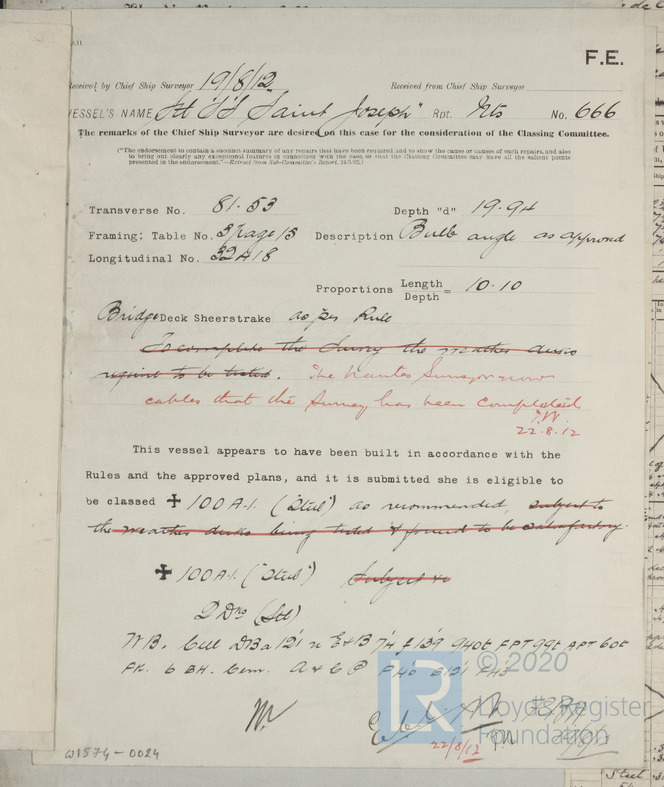 F.E.
Received by Chief Ship Surveyor 19/8/12 Received from Chief Ship Surveyor
VESSEL'S NAME "Saint Joseph" Rpt. Nts No. 666
The remarks of the Chief Ship Surveyor are desired on this case for the consideration of the Classing Committee.
("The endorsement to contain a succinct summary of any repairs that have been required and to show the cause or causes of such repairs, and also
to bring out clearly any exceptional features in connection with the case, so that the Classing Committee may have all the salient points
presented in the endorsement."—Extract from Sub-Committee's Report,
Transverse No. 81.53 Depth "d" 19.94
Framing: Table No. 3 Page 15 Description Bulb angle as approved
Longitudinal No. 32418
Proportions Length
Depth = 10.10
Bridge Deck Sheerstrake as per Rule
To complete the Survey the weather decks
require to be tested. The Nantes Surveyor now
cables that the Survey has been completed
22.8.12
This vessel appears to have been built in accordance with the
Rules and the approved plans, and it is submitted she is eligible to
be classed ✠ 100A.1. ("Steel") as recommended, subject to
the weather decks being tested & found to be satisfactory.
✠ 100A.1. ("Steel") Subject to
2 Dks (Stl)
W.B. Cell DBa 121' u E&B 74' f 139' 940t FPT 99t APT 60t
6 BH. Cem.
22/8/12
© 2020
LR
Lloyd's Register
Foundation
W1574-0024
Steel